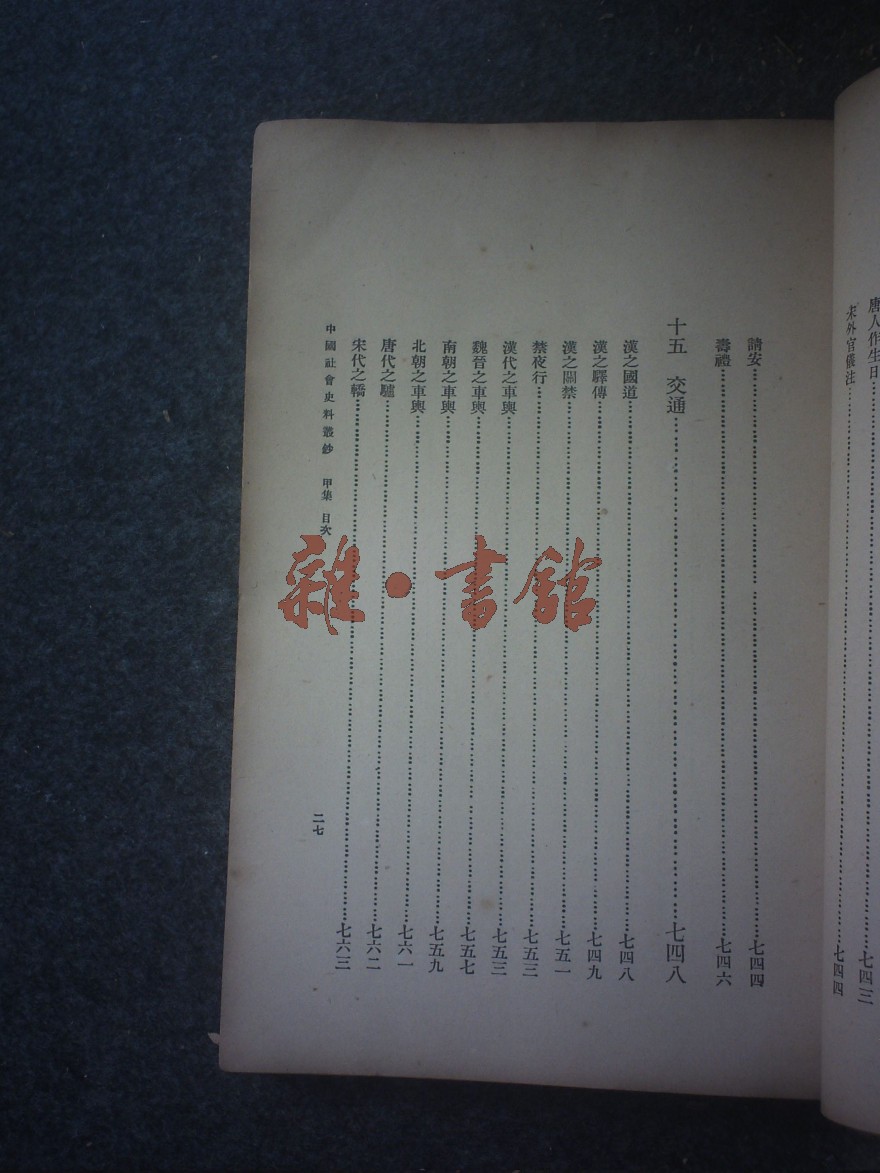 唐人作生日……七四三
宋外官儀注……七四四
請安……七四四
壽禮……七四六
十五　交通……七四八
漢之國道……七四八
漢之驛傳……七四九
漢之關禁……七五一
禁夜行……七五三
漢代之車輿……七五三
魏晉之車輿……七五七
南朝之車輿……七五九
北朝之車輿……七六一
唐代之驢……七六二
宋代之轎……七六三
中國社會史料叢鈔　甲集　目次
二七
雜·書館